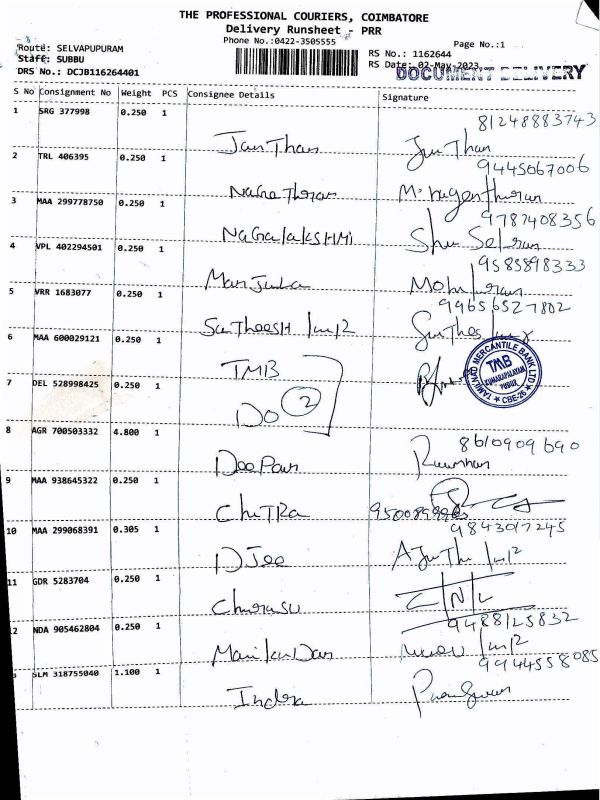 THE PROFESSIONAL COURIERS, COIMBATORE
Delivery Runsheet - PRR
Phone No.:0422-3505555
Page No.:1
Route: SELVAPUPURAM
RS No.: 1162644
Staff: SUBBU
RS Date: 02-May-2023
DRS No.: DCJB116264401
DOCUMENT DELIVERY
S No Consignment No Weight PCS Consignee Details Signature
1 SRG 377998 0.250 1
81248883743
JanThan
2 TRL 406395 0.250 1
9445067006
3 MAA 299778750 0.250 1
9787408356
NaGalakSHMi
4 VPL 402294501 0.250 1
9585898333
Manjula
5 VRR 1683077 0.250 1
99656527802
SaTheesH
6 MAA 600029121 0.250 1
TMB
TAMILNAD MERCANTILE BANK LTD.
TMB
CBE-26
7 DEL 528998425 0.250 1
DO 2
8 AGR 700503332 4.800 1
8610909690
DeePan
9 MAA 938645322 0.250 1
ChiTRa
10 MAA 299068391 0.305 1
9843017245
11 GDR 5283704 0.250 1
NDA 905462804 0.250 1
9488125832
ManikanDan
SLM 318755040 1.100 1
9944558085
Indra